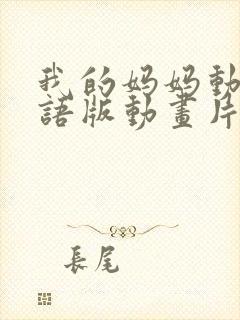 我的妈妈動
語版動畫片
長尾